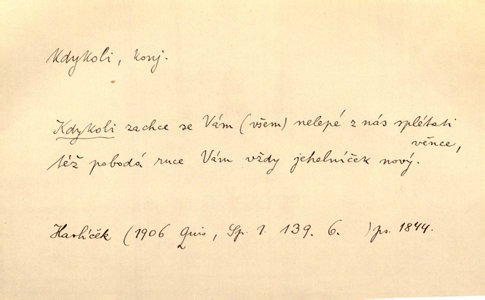 Kdykoli, konj.
Kdykoli zachce se Vám (všem) nelepé z nás splétati
věnce,
též pobodá ruce Vám vždy jehelníček nový.
Havlíček (1906 Quis, Sp. 1. 139. 6. ) ps. 1844.